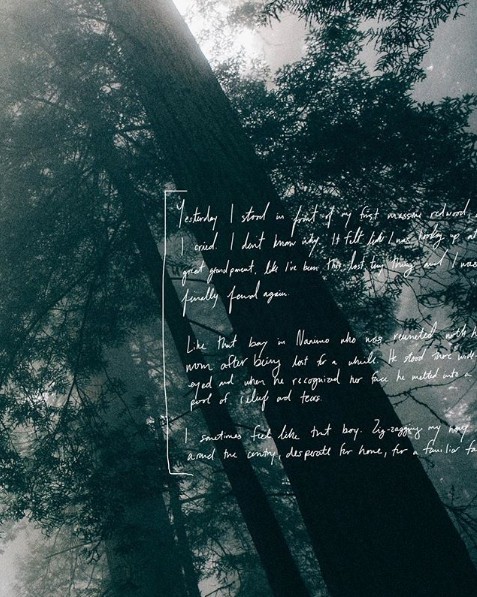 Yesterday I stood in front of my first massive redwood &
I cried. I don't know why. It felt like I was looking up at
great grandparent, like I've been this lost tiny thing and I was
finally found again.
Like that boy in Nanimo who was reunited with h
mom after being lost for a while. He stood there wide-
eyed and when he recognized her face he melted into a
pool of relief and tears.
I sometimes feel like that boy. Zig-zagging my way
around the country, desperate for home, for a familiar fa